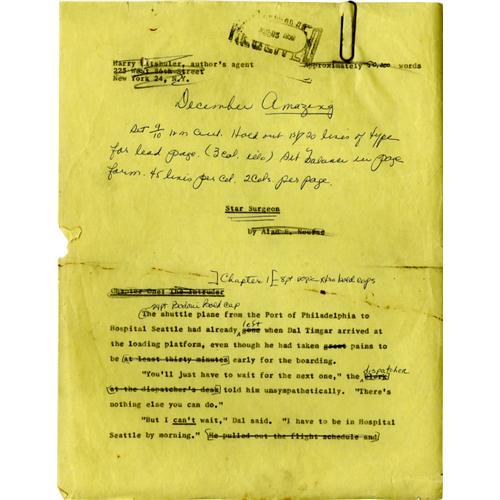 Harry Altshuler, author's agent
225 West 86th Street
New York 24, N.Y.
Approximately words
December Amazing
Set 9/10 Rom Cent. Hold out 15/20 lines of type
for lead page. (3 col. ) Set balance in page
form. 45 lines per col. 2 cols. per page.
Star Surgeon
by Alan E. Nourse
] Chapter 1 [ 8pt xtra bold caps
Chapter One: The Intruder
Bodoni Bold cap
The shuttle plane from the Port of Philadelphia to
Hospital Seattle had already gone left when Dal Timgar arrived at
the loading platform, even though he had taken great pains to
be at least thirty minutes early for the boarding.
"You'll just have to wait for the next one," the clerk dispatcher
at the dispatcher's desk told him unsympathetically. "There's
nothing else you can do."
"But I can't wait," Dal said. "I have to be in Hospital
Seattle by morning." He pulled out the flight schedule and